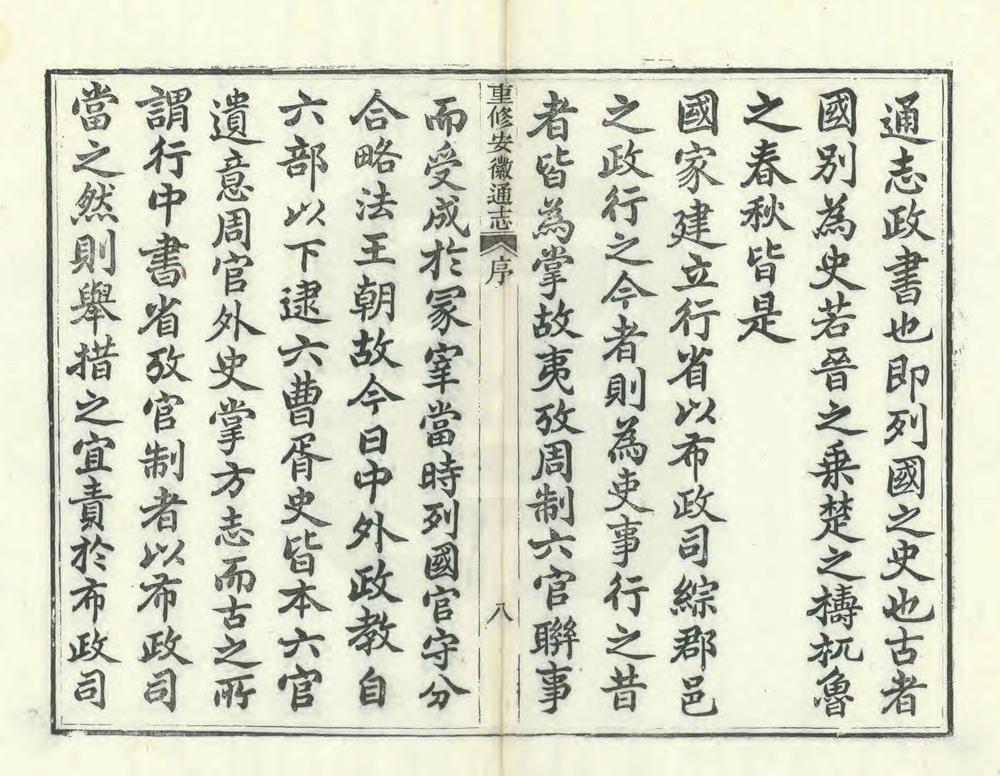 通志政書也即列國之史也古者
國别為史若晉之乗楚之檮杌魯
之春秋皆是
國家建立行省以布政司綜郡邑
之政行之今者則為吏事行之昔
者皆為掌故夷攷周制六官聯事
重修安徽通志
序
八
而受成於冢宰當時列國官守分
合略法王朝故今日中外政教自
六部以下逮六曹胥史皆本六官
遺意周官外史掌方志而古之所
謂行中書省攷官制者以布政司
當之然則舉措之宜責於布政司